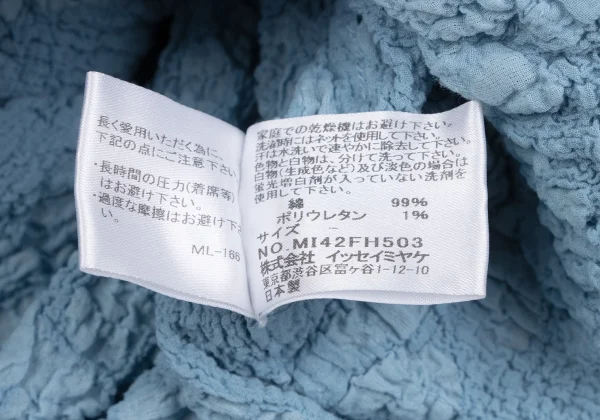 長く愛用いただく為に、
下記の点にご注意下さい
・長時間の圧力(着席等)
はお避け下さい。
・過度な摩擦はお避け下さ
い。
ML-166
家庭での乾燥機はお避け下さい。
洗濯時にはネットを使用して下さい。
汗は水洗いで速やかに除去して下さい。
色物と白物は、分けて洗って下さい。
白物(生成色など)及び淡色の場合は
蛍光増白剤が入っていない洗剤を
使用して下さい。
綿 99%
ポリウレタン 1%
サイズ
NO.MI42FH503
株式会社 イッセイミヤケ
東京都渋谷区富ヶ谷1-12-10
日本製